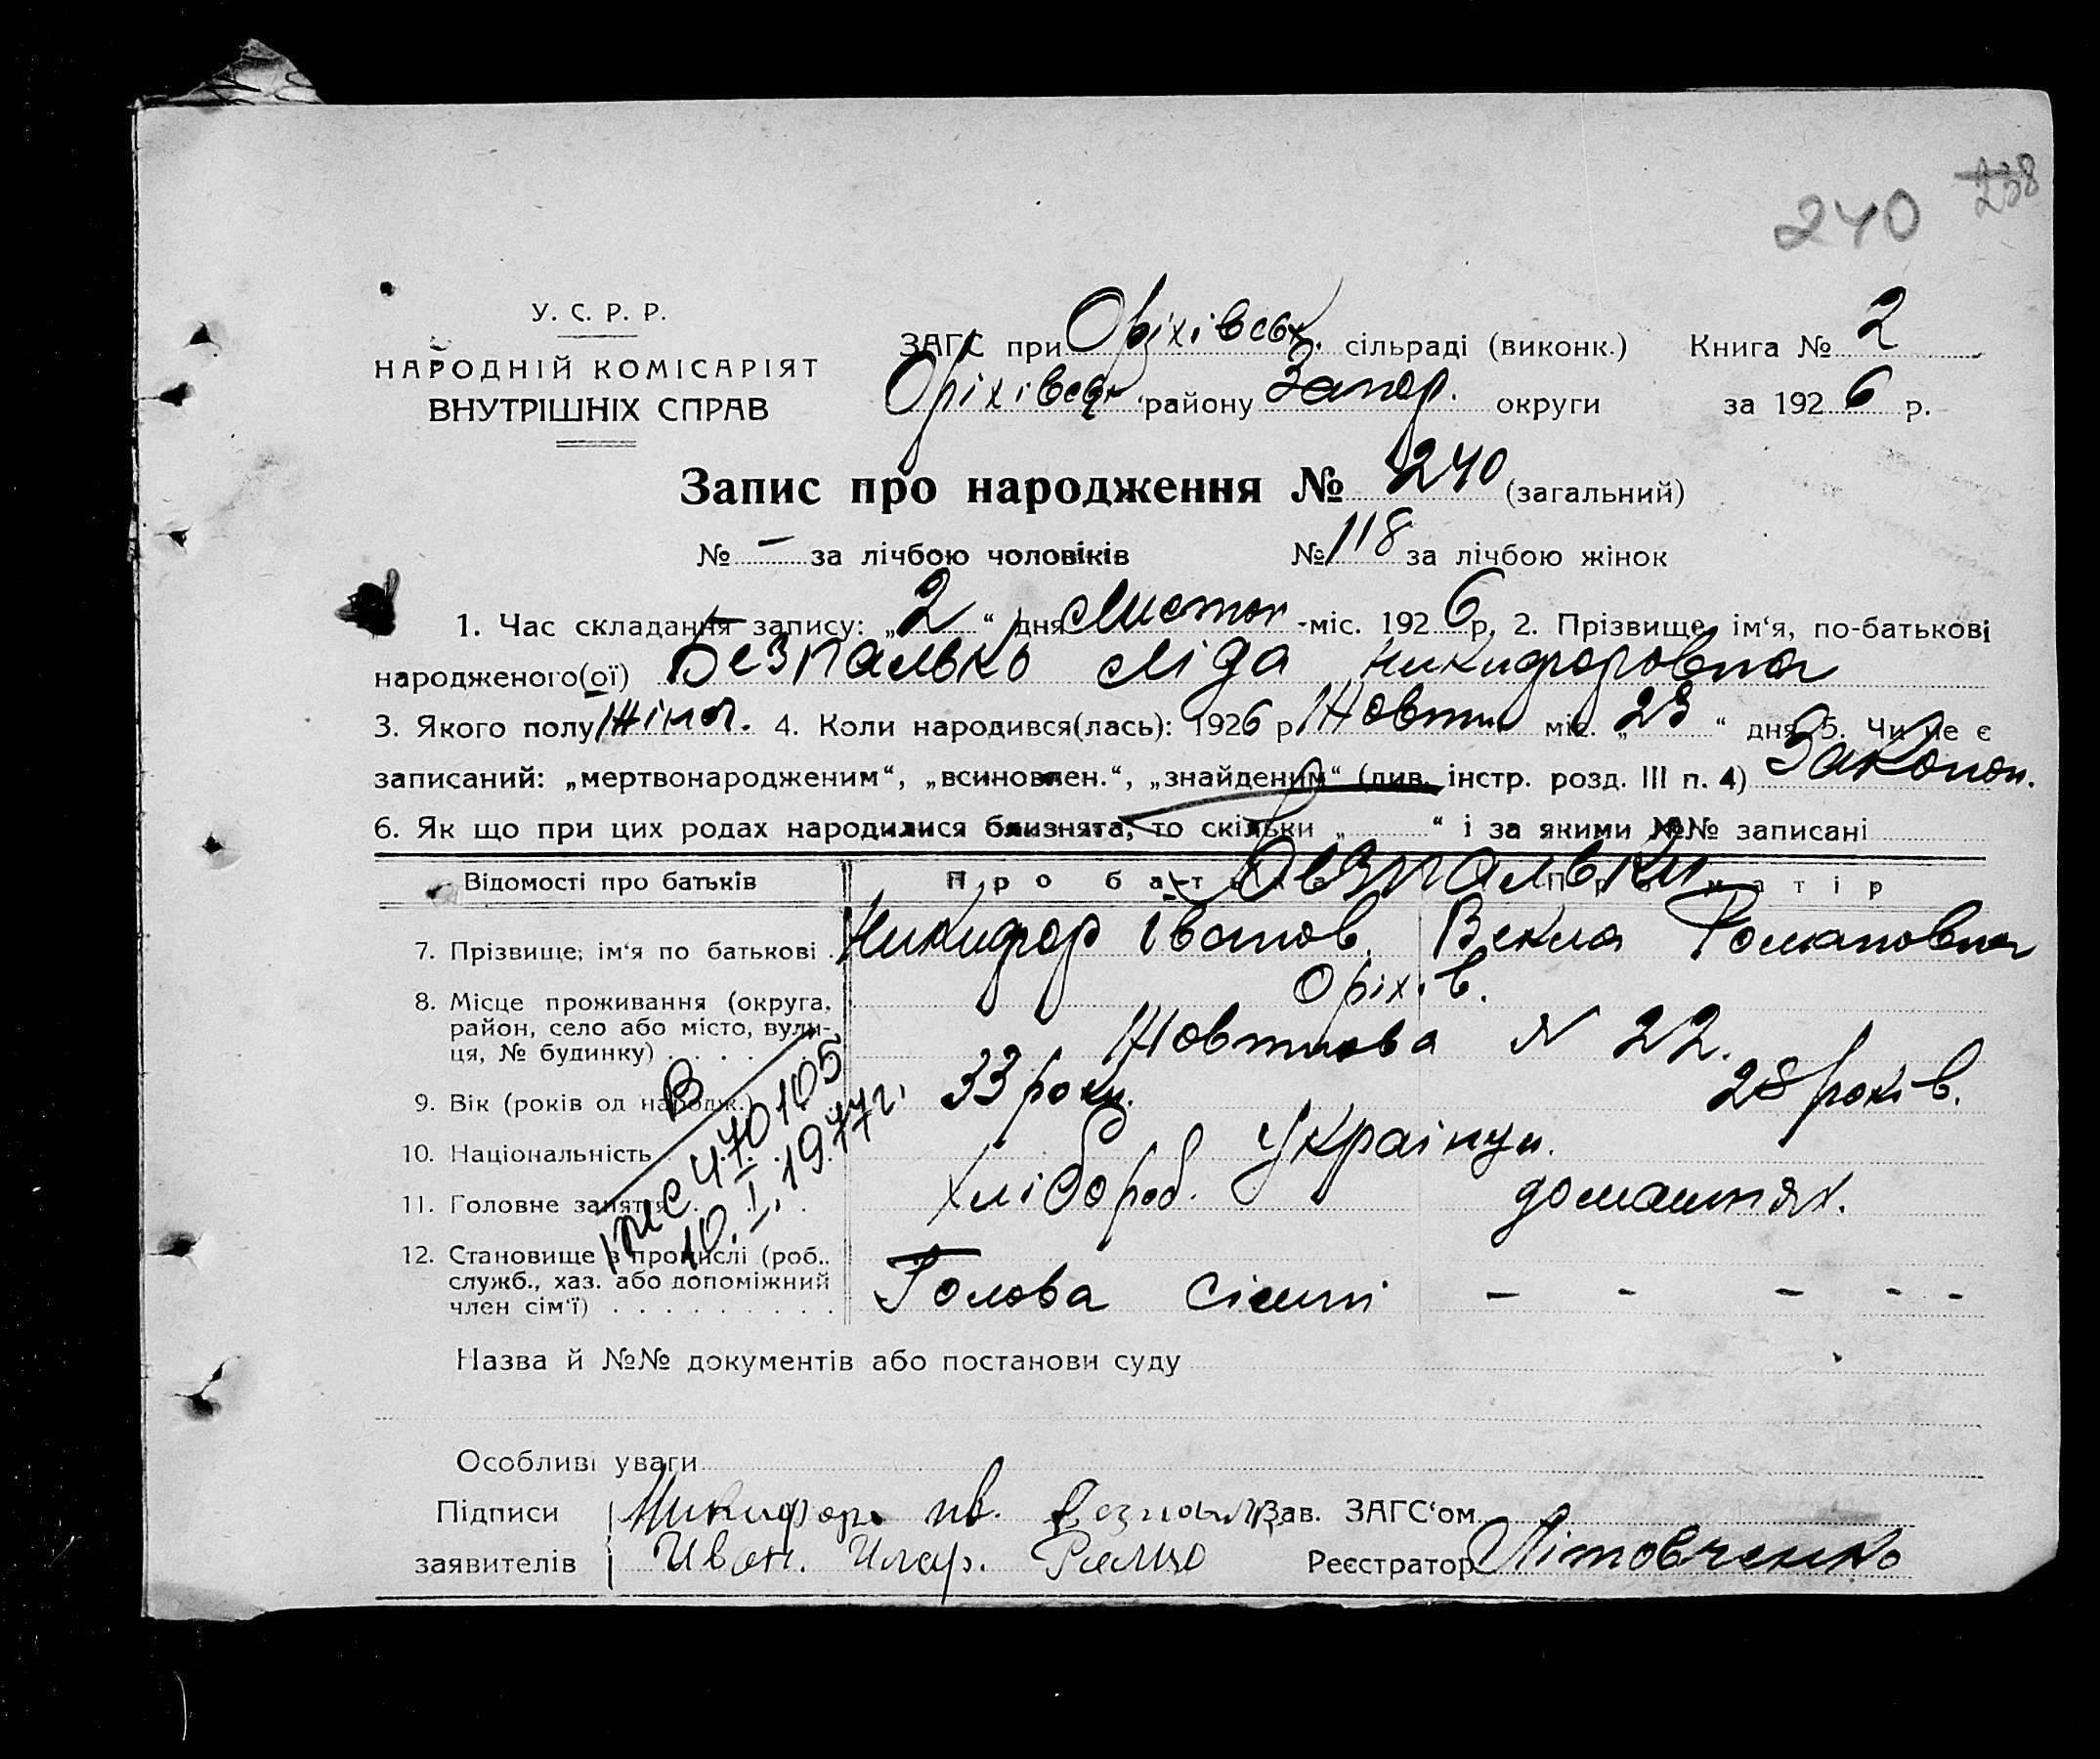 240 238
У. С. Р. Р.
НАРОДНІЙ КОМІСАРІЯТ
ВНУТРІШНІХ СПРАВ
ЗАГС при Оріхівськ. сільраді (виконк.) Книга № 2
Оріхівськ. району Запор. округи за 1926 р.
Запис про народження № 240 (загальний)
№ – за лічбою чоловіків № 118 за лічбою жінок
1. Час складання запису: „2“ дня Листоп -міс. 1926 р. 2. Прізвище, ім‘я, по-батькові
народженого(ої) Безпалько Ліда Никифоровна
3. Якого полу Жіноч. 4. Коли народився(лась): 1926 р. Жовтня міс. „23“ дня 5. Чи не є
записаний: „мертвонародженим“, „всиновлен.“, „знайденим“ (див. інстр. розд. III п. 4) Законон.
6. Як що при цих родах народилися близнята, то скільки „ “ і за якими №№ записані
Відомості про батьків Про батька Про матір
Безпальки
7. Прізвище; ім‘я по батькові . Никифор Іванов. Векла Романовна
8. Місце проживання (округа, район, село або місто, вули-ця, № будинку) . . . . Оріхів.
Жовтнева N 22.
9. Вік (років од народж.) 33 роки. 28 років.
10. Національність Українци.
11. Головне заняття . . . Хлібороб. домашнях.
12. Становище в промислі (роб.,
служб., хаз. або допоміжний
член сім‘ї) . . . . . . . . . . Голова сімті – – – – –
В
470105
10.I.1977г.
Назва й №№ документів або постанови суду
Особливі уваги
Підписи Микифор Ив. Зав. ЗАГС‘ом
заявителів Иван. Илар. Реєстратор Літовченко